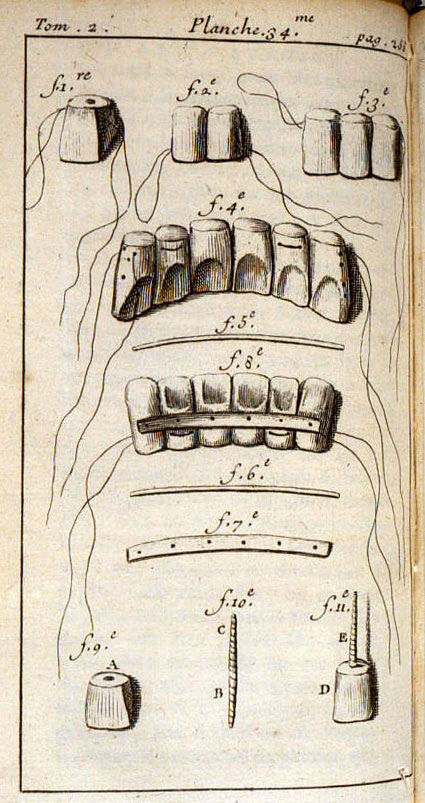 Tom. 2. Planche. 34.me
f.1.re f.2.e f.3.e
f.4.e
f.5.e
f.8.e
f.6.e
f.7.e
f.9.e f.10.e f.11.e
A C E
B D